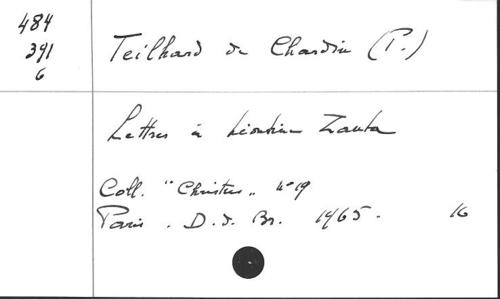 484
391
6
Teilhard de Chardin (P.)
Lettres à Léontine Zanta
Coll. "Christus" n° 19
Paris. D.d. Br. 1965. 16